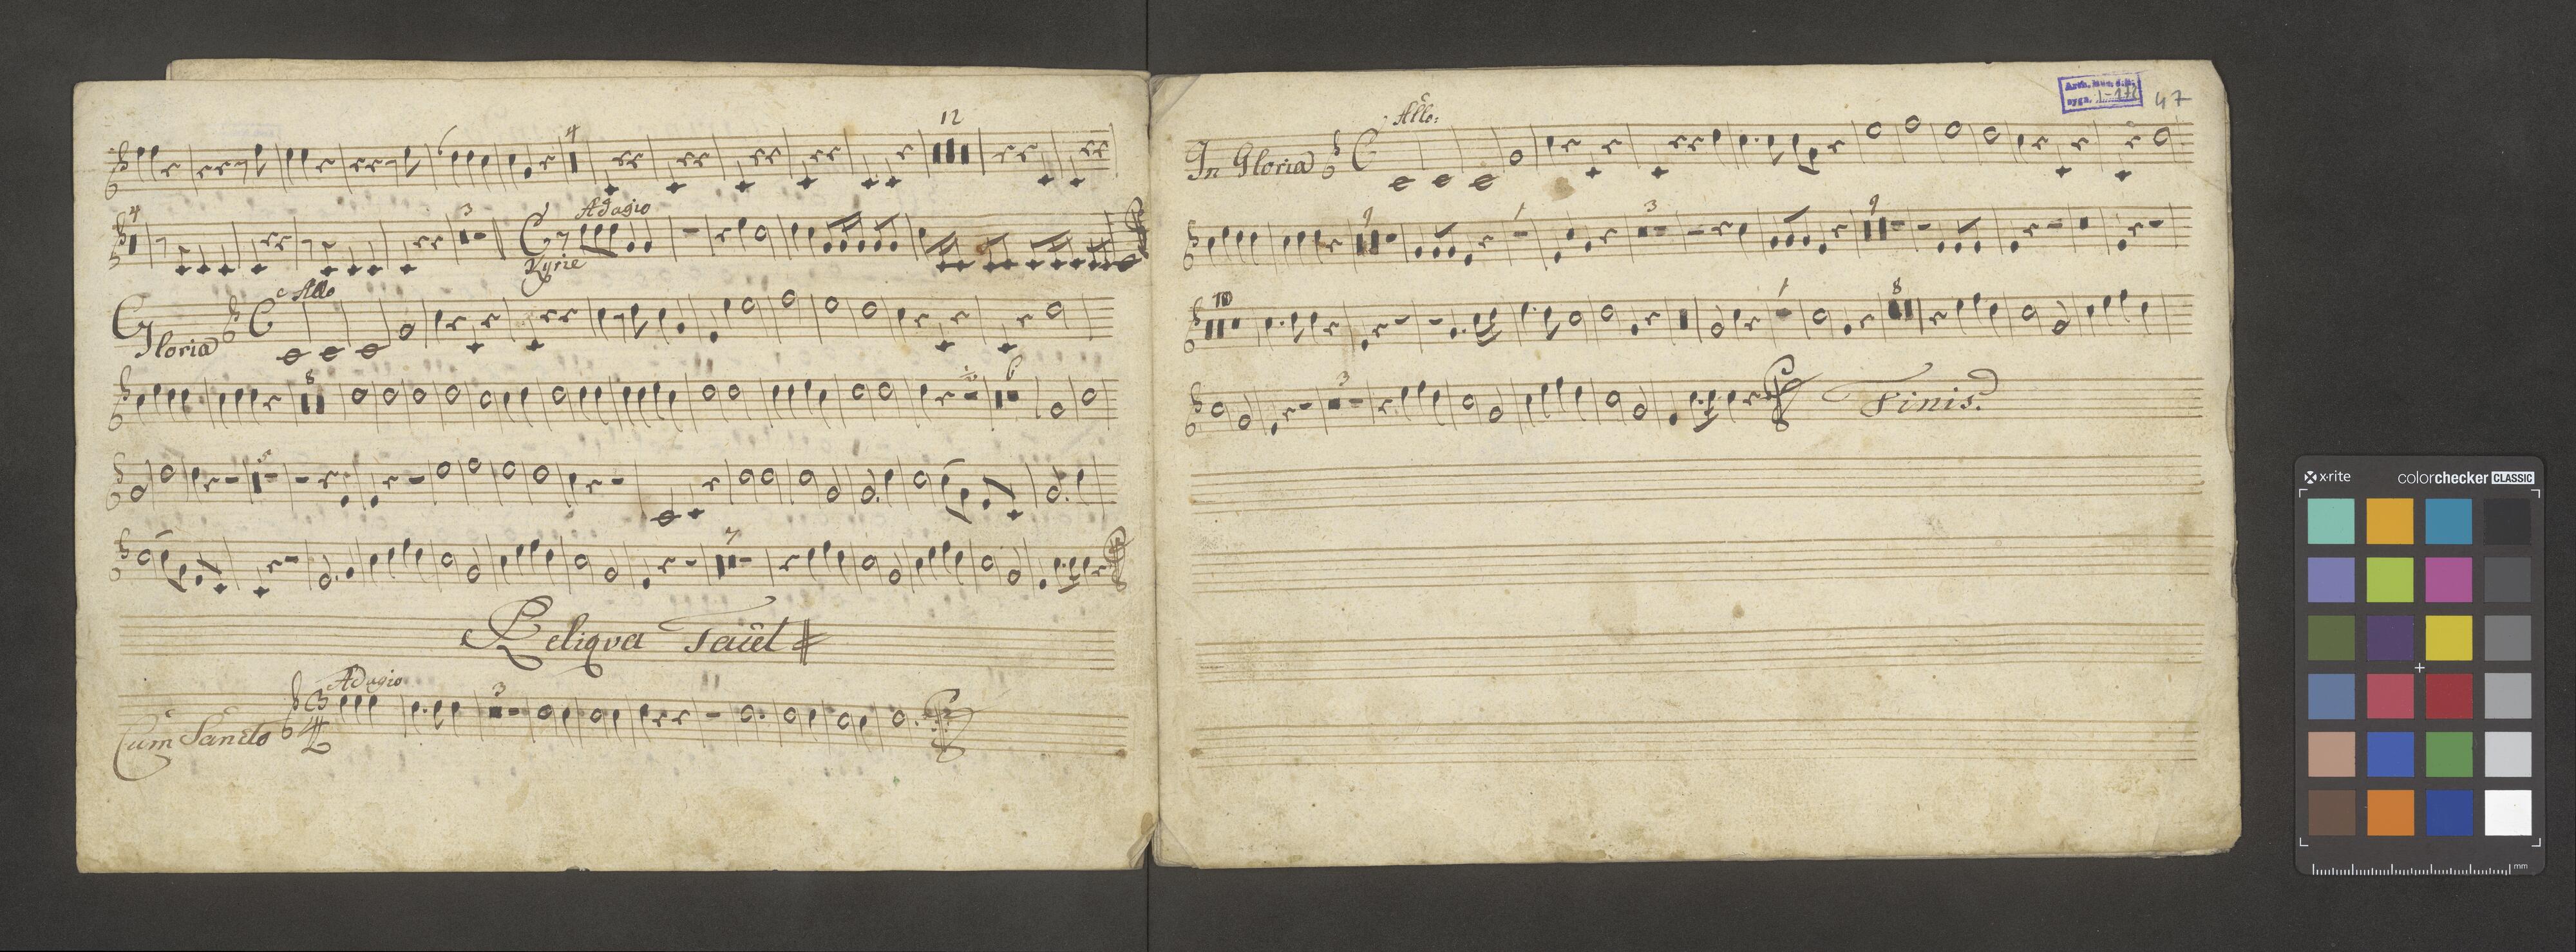 12
4
4
3
Adagio
Kyrie
Gloria
Allo
8
6
7
Reliqva Tacet
Adagio
Cum Sancto
3
47
Allo:
In Gloria
9
1
3
9
10
1
8
3
Finis.
x-rite
colorchecker CLASSIC
mm